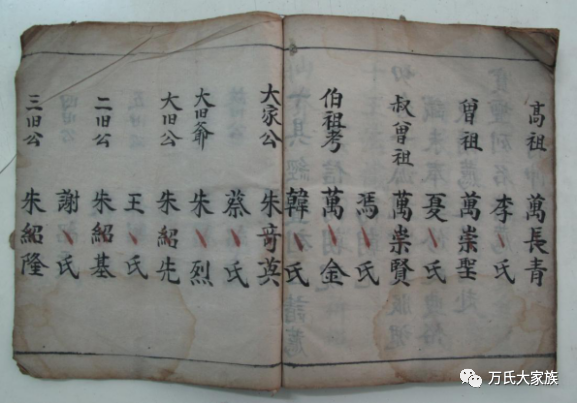 高祖 萬長青
李氏
曾祖 萬崇聖
夏氏
叔曾祖 萬崇賢
氏
伯祖考 萬金
韓氏
大家公 朱奇
蔡氏
大旧爺 朱烈
大旧公 朱紹先
王氏
二旧公 朱紹基
謝氏
三旧公 朱紹隆
万氏大家族